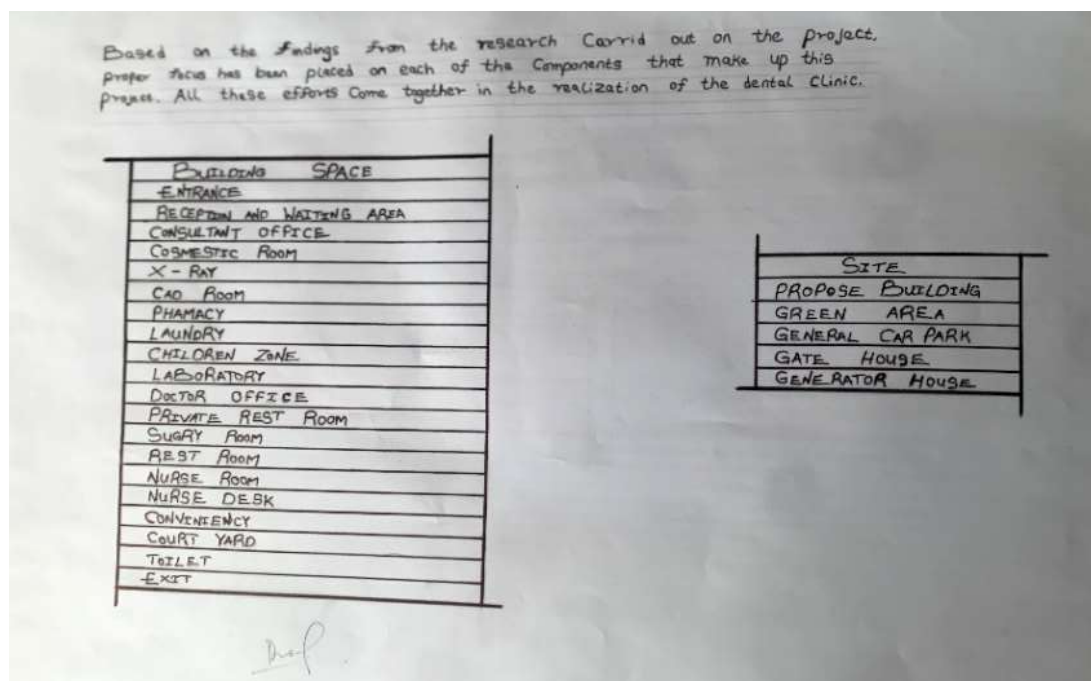 Based on the findings from the research Carrid out on the project.
proper focus has been placed on each of the Components that make up this
project. All these efforts Come together in the realization of the dental Clinic.
BUILDING SPACE
ENTRANCE
RECEPTION AND WAITING AREA
CONSULTANT OFFICE
COSMESTIC ROOM
X-RAY
CAD ROOM
PHAMACY
LAUNDRY
CHILDREN ZONE
LABORATORY
DOCTOR OFFICE
PRIVATE REST ROOM
SUGRY ROOM
REST ROOM
NURSE ROOM
NURSE DESK
CONVINIENCY
COURT YARD
TOILET
EXIT
SITE
PROPOSE BUILDING
GREEN AREA
GENERAL CAR PARK
GATE HOUSE
GENERATOR HOUSE